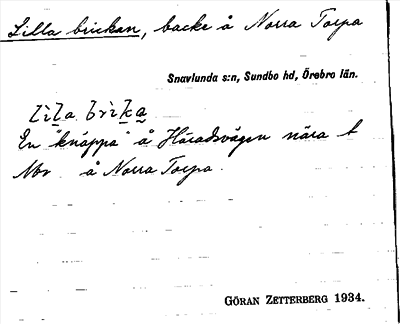 Lilla brickan, backe å Norra Torpa
Snavlunda s:n, Sundbo hd, Örebro län.
lìla brìka
En "knäppa" å Häradsvägen nära t
å Norra Torpa.
GÖRAN ZETTERBERG 1934.